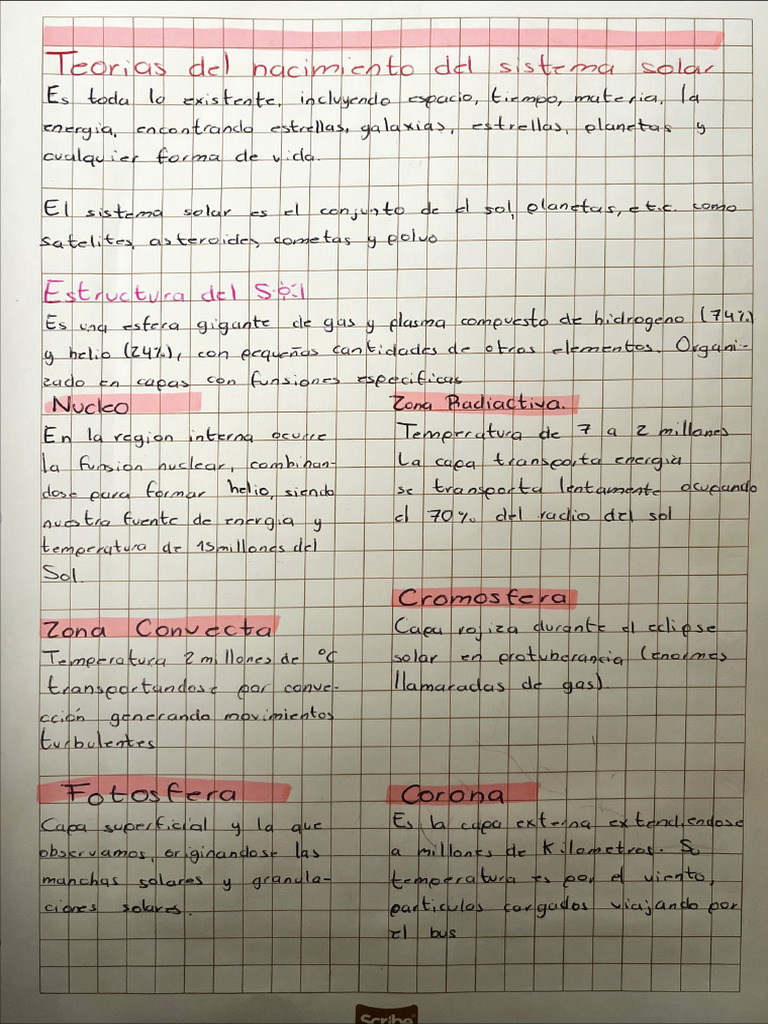 Teorias del nacimiento del sistema solar
Es toda lo existente, incluyendo espacio, tiempo, materia, la
energia, encontrando estrellas, galaxias, estrellas, planetas y
cualquier forma de vida.
El sistema solar es el conjunto de el sol, planetas, etc. como
satelites, asteroides, cometas y polvo
Estructura del Sol
Es una esfera gigante de gas y plasma compuesto de hidrogeno (74%)
y helio (24%), con pequeñas cantidades de otros elementos. Organi-
zado en capas con funsiones especificas
Nucleo
En la region interna ocurre
la funsion nuclear, combinan-
dose para formar helio, siendo
nuestra fuente de energia y
temperatura de 15 millones del
Sol.
Zona Radiactiva.
Temperratura de 7 a 2 millones
La capa transporta energia
se transporta lentamente ocupando
el 70% del radio del sol
Zona Convecta
Temperatura 2 millones de °C
transportandose por conve-
cción generando movimientos
turbulentes
Cromosfera
Capa rojiza durante el eclipse
solar en protuberancia (enormes
llamaradas de gas).
Fotosfera
Capa superficial y la que
observamos, originandose las
manchas solares y granula-
ciones solares.
Corona
Es la capa externa extendiendose
a millones de Kilometros. Su
temperatura es por el viento,
particulos cargados viajando por
el bus
Scribe